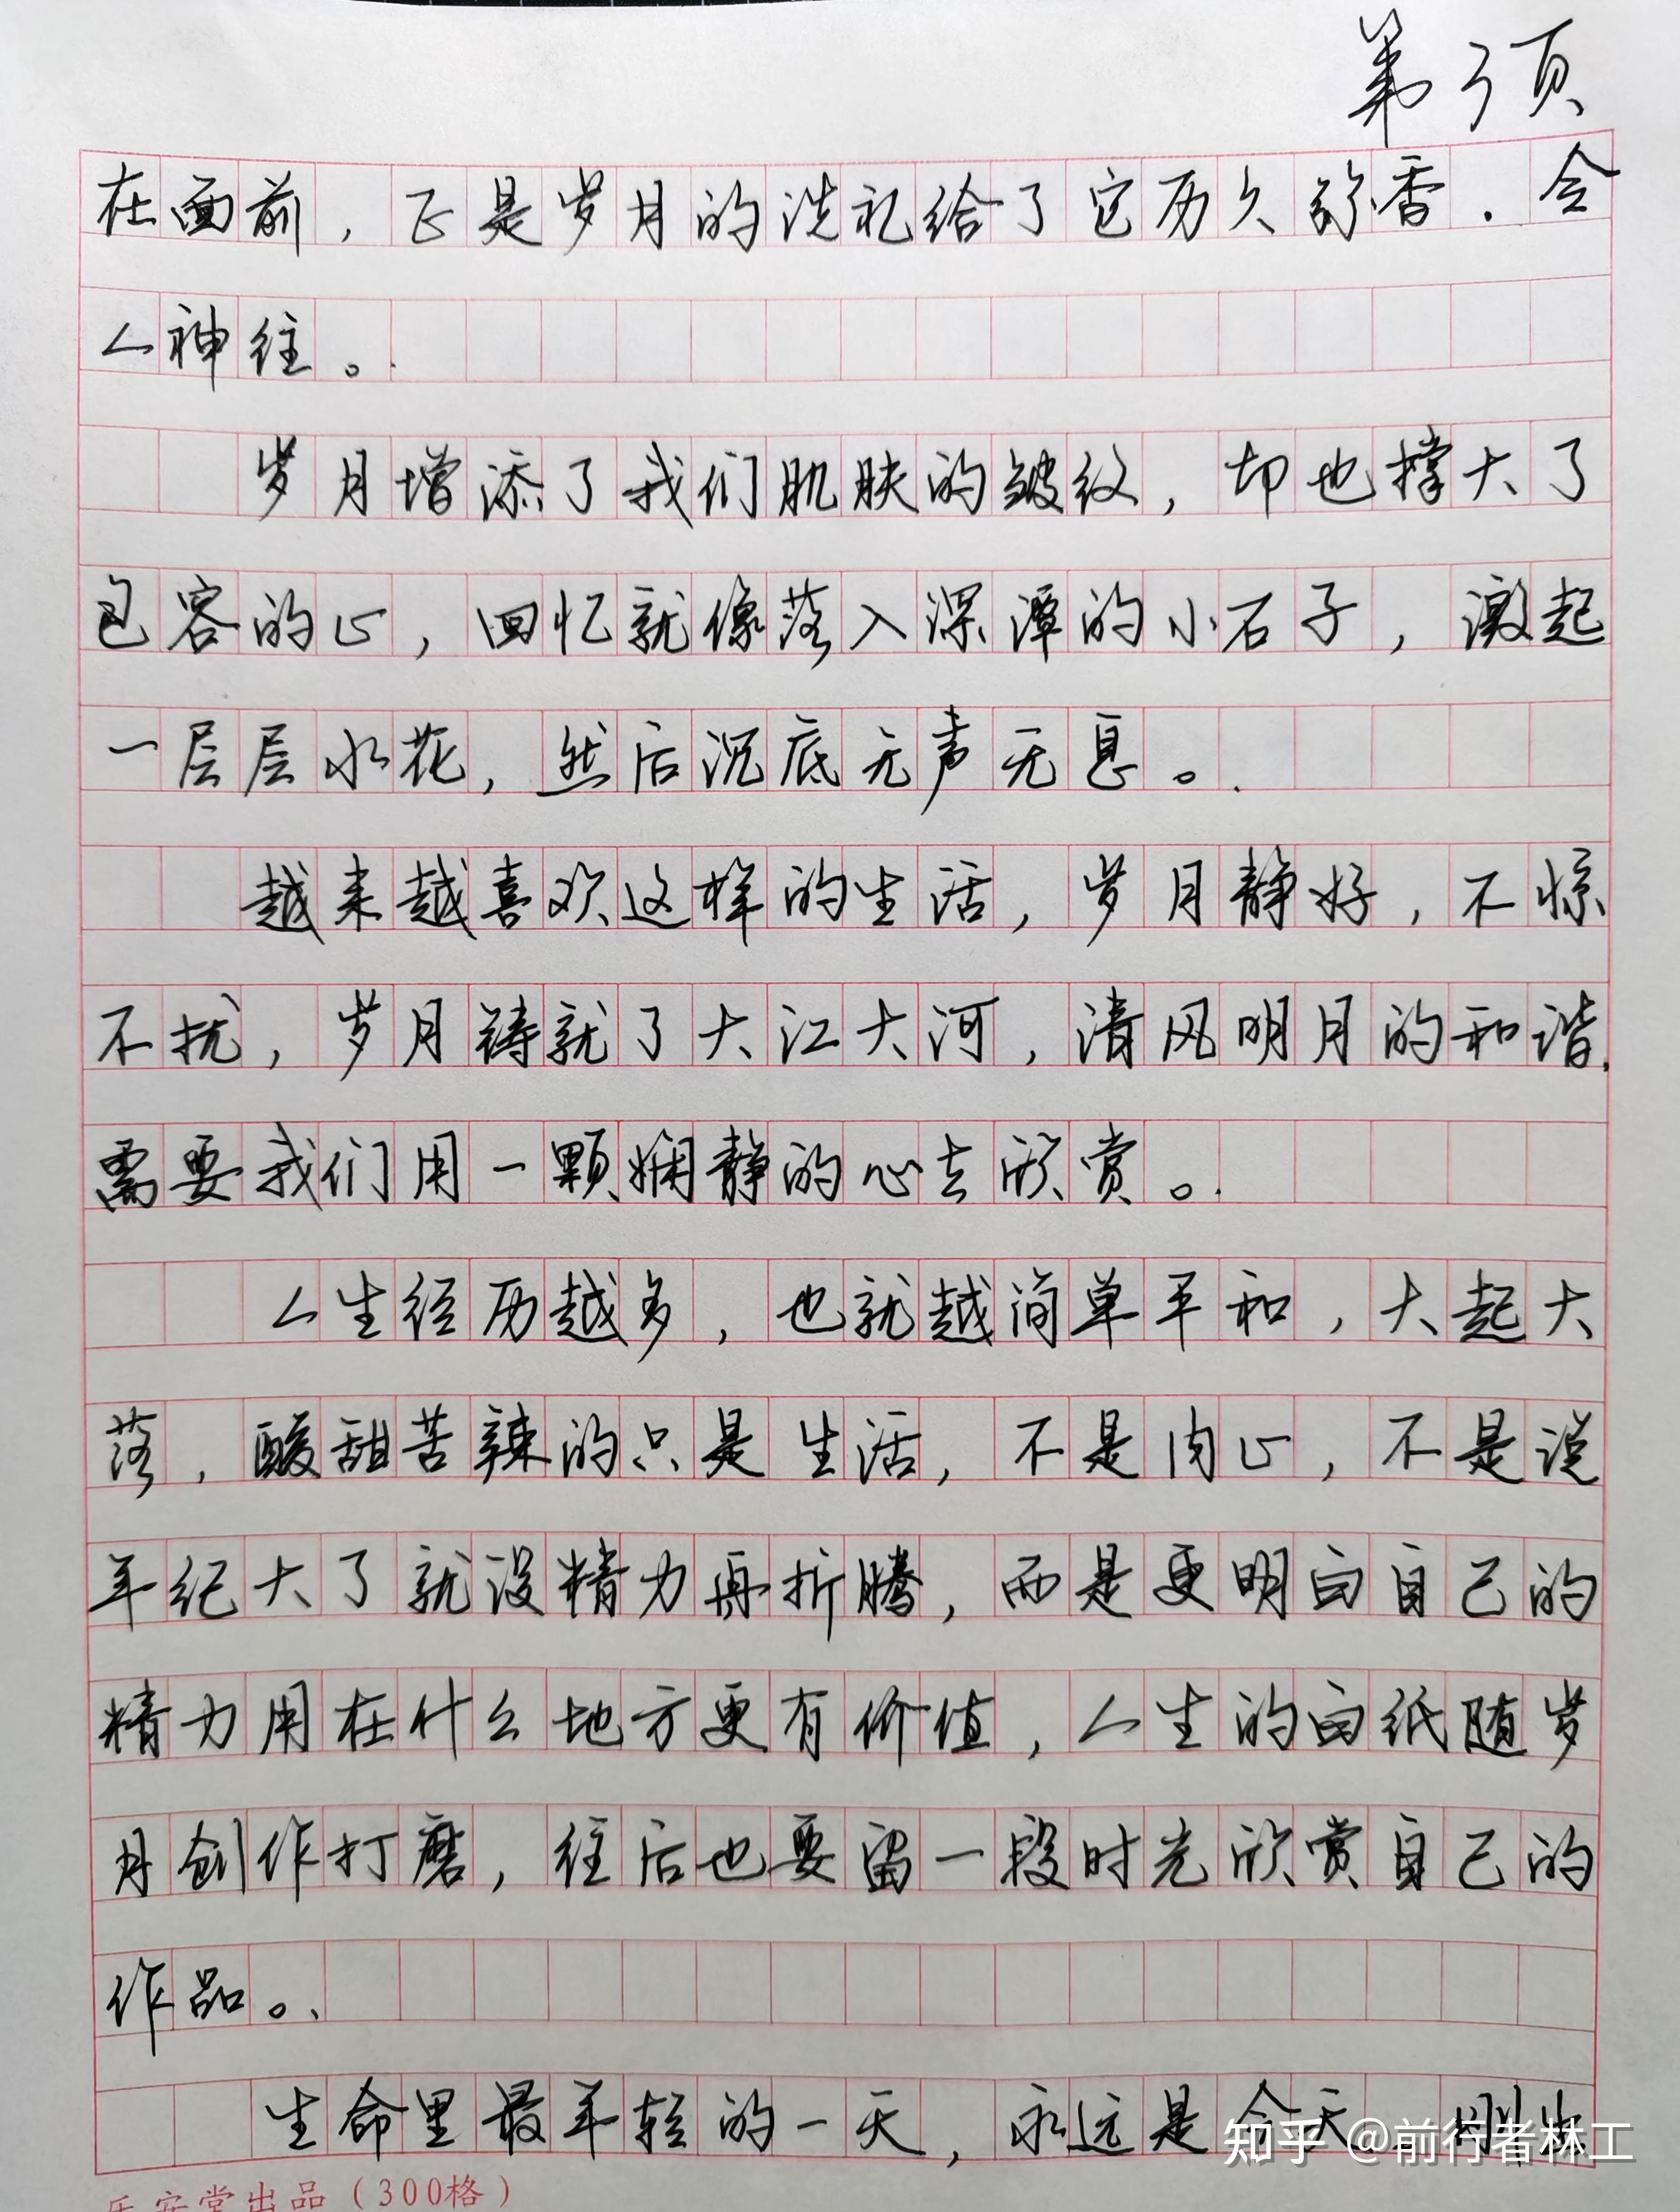 第3页
在面前，正是岁月的洗礼给了它历久弥香．令
人神往。
岁月增添了我们肌肤的皱纹，却也撑大了
包容的心，回忆就像落入深潭的小石子，激起
一层层水花，然后沉底无声无息。
越来越喜欢这样的生活，岁月静好，不惊
不扰，岁月铸就了大江大河，清风明月的和谐，
需要我们用一颗娴静的心去欣赏。
人生经历越多，也就越简单平和，大起大
落，酸甜苦辣的只是生活，不是内心，不是说
年纪大了就没精力再折腾，而是更明白自己的
精力用在什么地方更有价值，人生的白纸随岁
月创作打磨，往后也要留一段时光欣赏自己的
作品。
生命里最年轻的一天，永远是今天，刚
知乎 @前行者林工
乐安堂出品（300格）